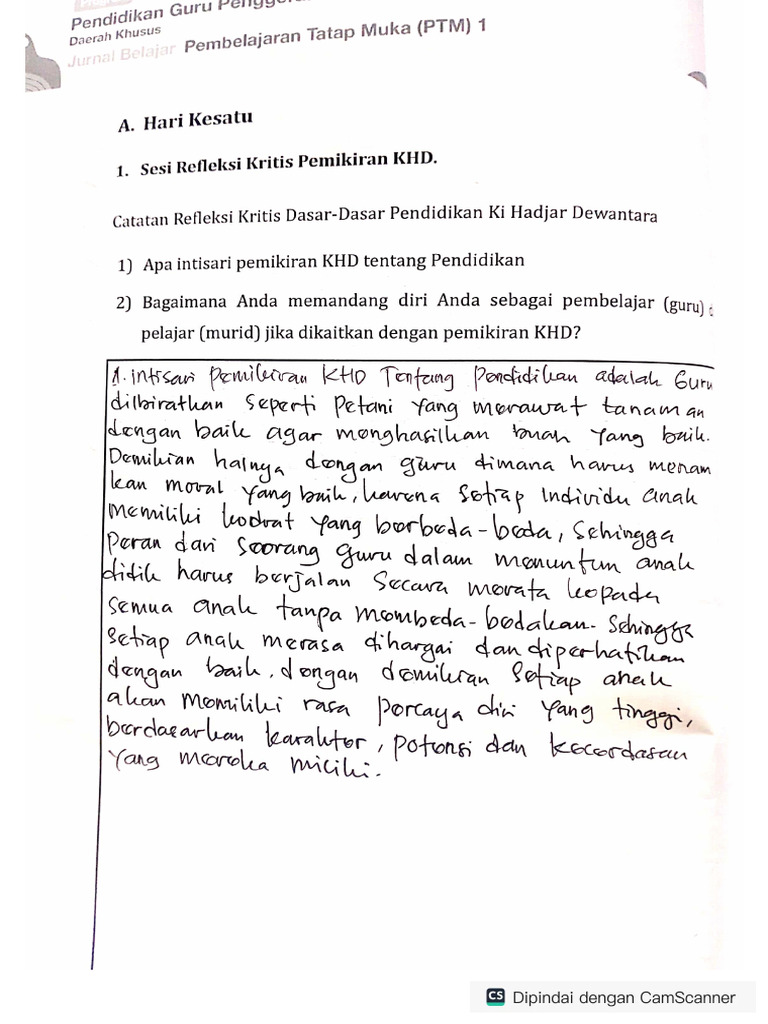 Pendidikan Guru
Daerah Khusus
Jurnal Belajar Pembelajaran Tatap Muka (PTM) 1
A. Hari Kesatu
1. Sesi Refleksi Kritis Pemikiran KHD.
Catatan Refleksi Kritis Dasar-Dasar Pendidikan Ki Hadjar Dewantara
1) Apa intisari pemikiran KHD tentang Pendidikan
2) Bagaimana Anda memandang diri Anda sebagai pembelajar (guru)
pelajar (murid) jika dikaitkan dengan pemikiran KHD?
1. intisari Pemikiran KHD Tentang Pendidikan adalah Guru
dilbiratkan seperti Petani Yang merawat tanam an
dengan baik agar menghasilkan buah Yang baik.
Demikian halnya dengan guru dimana harus menam
kan moral Yang baik, karena Setiap Individu anak
Memiliki kodrat Yang berbeda-beda, Sehingga
Peran dari Seorang guru dalam menuntun anak
didik harus berjalan Secara merata kepada
semua anak tanpa membeda-bedakan. Sehingga
Setiap anak merasa dihargai dan diperhatikan
dengan baik, dengan demikian Setiap anak
akan Memiliki rasa Percaya diri Yang tinggi,
berdasarkan karakter, Potensi dan kecerdasan
Yang mereka miliki.
CS Dipindai dengan CamScanner